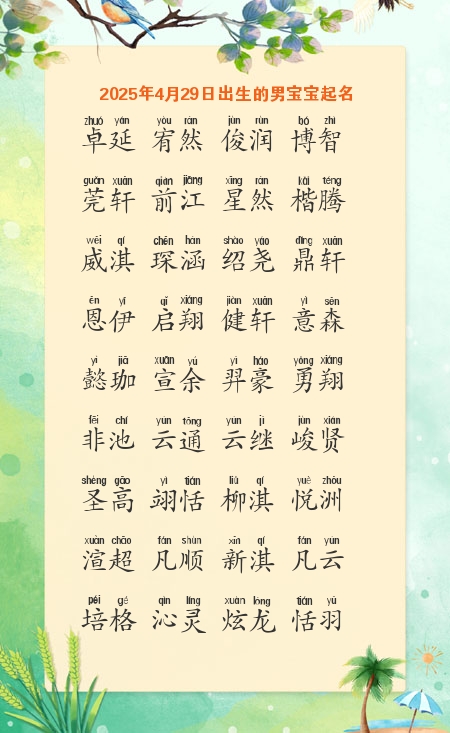 2025年4月29日出生的男宝宝起名
zhuó yán yòu rán jùn rùn bó zhì
卓延 宥然 俊润 博智
guān xuān qián jiāng xīng rán kǎi téng
莞轩 前江 星然 楷腾
wēi qí chēn hán shào yáo dǐng xuān
威淇 琛涵 绍尧 鼎轩
ēn yī qǐ xiáng jiàn xuān yì sēn
恩伊 启翔 健轩 意森
yì jiā xuān yú yì háo yǒng xiáng
懿珈 宣余 羿豪 勇翔
fēi chí yún tōng yún jì jùn xián
非池 云通 云继 峻贤
shèng gāo yì tián liǔ qí yuè zhōu
圣高 翊恬 柳淇 悦洲
xuàn chāo fán shùn xīn qí fán yún
渲超 凡顺 新淇 凡云
péi gé qìn líng xuàn lóng tián yǔ
培格 沁灵 炫龙 恬羽